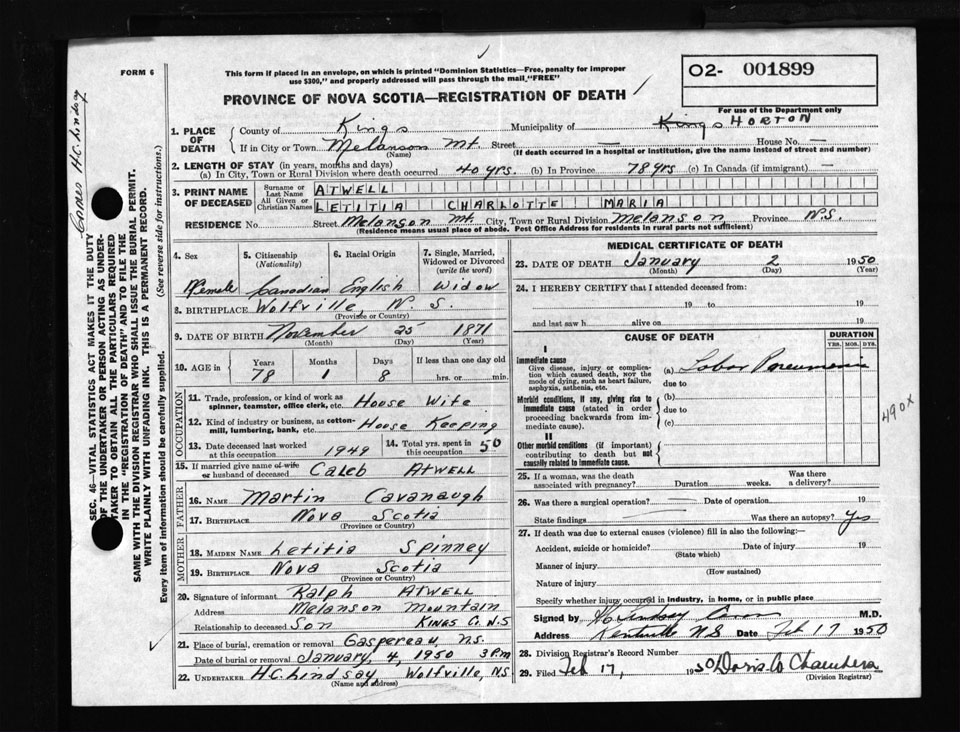 FORM 6
This form if placed in an envelope, on which is printed "Dominion Statistics—Free, penalty for improper
use $300," and properly addressed will pass through the mail, "FREE"
PROVINCE OF NOVA SCOTIA—REGISTRATION OF DEATH
O2- 001899
For use of the Department only
1. PLACE OF DEATH
County of Kings Municipality of Kings HORTON
If in City or Town Melanson Mt. Street — House No. —
(Name) (If death occurred in a hospital or institution, give the name instead of street and number)
2. LENGTH OF STAY (in years, months and days)
(a) In City, Town or Rural Division where death occurred 40 yrs. (b) In Province 78 yrs (c) In Canada (if immigrant) —
3. PRINT NAME OF DECEASED
Surname or Last Name ATWELL
All Given or Christian Names LETITIA CHARLOTTE MARIA
RESIDENCE No. Street Melanson Mt. City, Town or Rural Division Melanson, Province N.S.
(Residence means usual place of abode. Post Office Address for residents in rural parts not sufficient)
4. Sex
Female
5. Citizenship (Nationality)
Canadian
6. Racial Origin
English
7. Single, Married, Widowed or Divorced (write the word)
Widow
8. BIRTHPLACE Wolfville, N. S.
(Province or Country)
9. DATE OF BIRTH November 25 1871
(Month) (Day) (Year)
10. AGE in
Years Months Days If less than one day old
78 1 8 hrs. or min.
OCCUPATION
11. Trade, profession, or kind of work as
spinner, teamster, office clerk, etc. House Wife
12. Kind of industry or business, as cotton-
mill, lumbering, bank, etc. House Keeping
13. Date deceased last worked
at this occupation 1949
14. Total yrs. spent in
this occupation 50
15. If married give name of wife
or husband of deceased Caleb Atwell
FATHER
16. NAME Martin Cavanaugh
17. BIRTHPLACE Nova Scotia
(Province or Country)
MOTHER
18. MAIDEN NAME Letitia Spinney
19. BIRTHPLACE Nova Scotia
(Province or Country)
20. Signature of informant Ralph Atwell
Address Melanson Mountain
Relationship to deceased Son Kings Co. N.S
21. Place of burial, cremation or removal Gaspereau, N.S.
Date of burial or removal January, 4, 1950 3 P.m
22. UNDERTAKER H.C. Lindsay, Wolfville, N.S
(Name and address)
MEDICAL CERTIFICATE OF DEATH
23. DATE OF DEATH January 2 1950
(Month) (Day) (Year)
24. I HEREBY CERTIFY that I attended deceased from:
19 to 19
and last saw h alive on 19
CAUSE OF DEATH
DURATION
YRS. MOS. DYS.
I
Immediate cause
Give disease, injury or complica-
tion which caused death, NOT the
mode of dying, such as heart failure,
asphyxia, asthenia, etc.
(a) Lobar Pneumonia
due to
Morbid conditions, if any, giving rise to
immediate cause (stated in order
proceeding backwards from im-
mediate cause).
(b)
due to
(c)
II
Other morbid conditions (if important)
contributing to death but not
causally related to immediate cause.
490X
25. If a woman, was the death
associated with pregnancy? Duration weeks. Was there a delivery?
26. Was there a surgical operation? — Date of operation 19
State findings Was there an autopsy? Yes
27. If death was due to external causes (violence) fill in also the following:—
Accident, suicide or homicide? Date of injury 19
(State which)
Manner of injury
(How sustained)
Nature of injury
Specify whether injury occurred in industry, in home, or in public place
Signed by M.D.
Address Kentville N.S Date Feb 17 1950
28. Division Registrar's Record Number
29. Filed Feb 17, 1950 Chambers
(Division Registrar)
H.C. Lindsay
SEC. 46—VITAL STATISTICS ACT MAKES IT THE DUTY
OF THE UNDERTAKER OR PERSON ACTING AS UNDER-
TAKER TO OBTAIN ALL THE PARTICULARS REQUIRED
IN THE "REGISTRATION OF DEATH" AND TO FILE THE
SAME WITH THE DIVISION REGISTRAR WHO SHALL ISSUE THE BURIAL PERMIT.
WRITE PLAINLY WITH UNFADING INK. THIS IS A PERMANENT RECORD.
Every item of information should be carefully supplied. (See reverse side for instructions.)